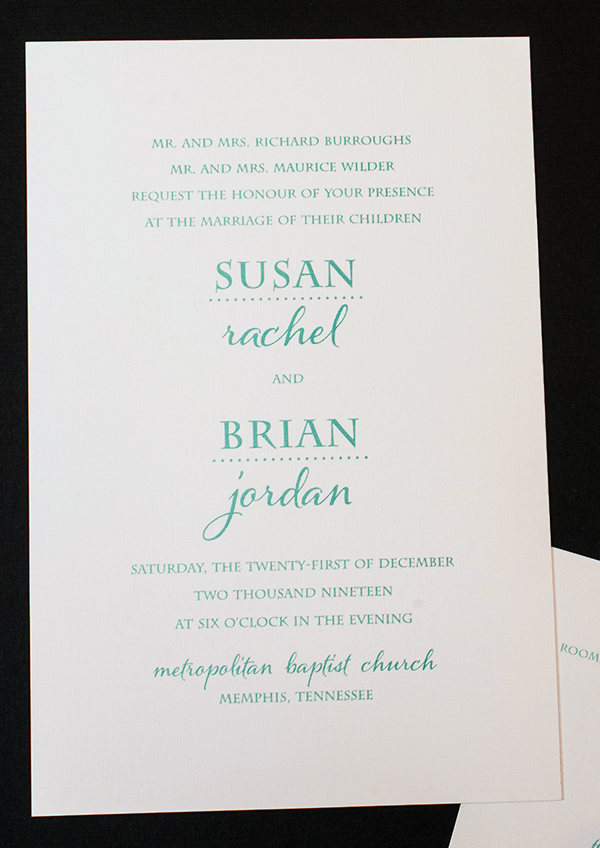 MR. AND MRS. RICHARD BURROUGHS
MR. AND MRS. MAURICE WILDER
REQUEST THE HONOUR OF YOUR PRESENCE
AT THE MARRIAGE OF THEIR CHILDREN
SUSAN
rachel
AND
BRIAN
jordan
SATURDAY, THE TWENTY-FIRST OF DECEMBER
TWO THOUSAND NINETEEN
AT SIX O'CLOCK IN THE EVENING
metropolitan baptist church
MEMPHIS, TENNESSEE
ROOM